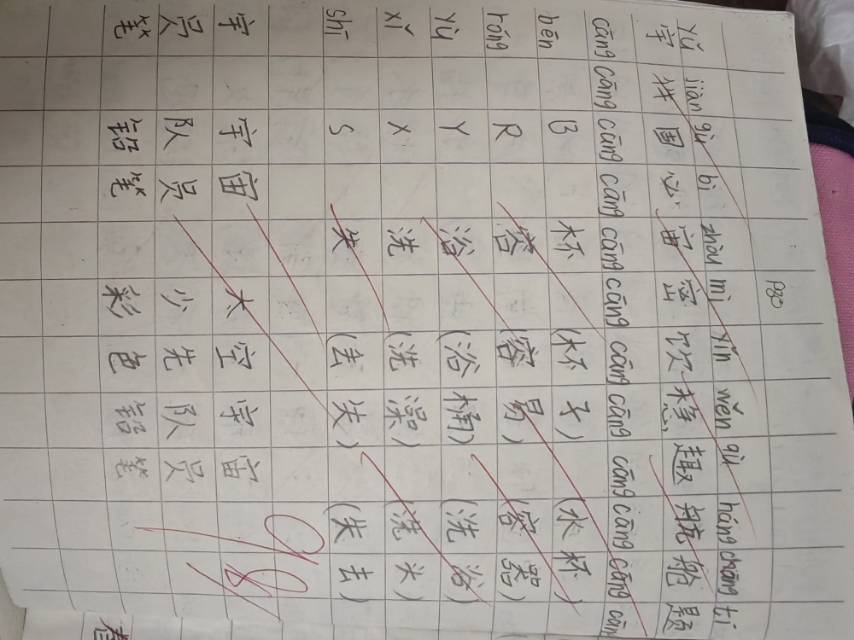 P80
yǔ jiān qù bì zhòu mì yǐn wěn qù háng cāng tí
宇 拼 必 宙 密 饮 稳 趣 航 舱 题
cāng cāng cāng cāng cāng cāng cāng cāng cāng cāng cāng cān
bēn B 杯 (杯子) (水杯)
róng R 容 (容易) (容器)
yù Y 浴 (浴桶) (洗浴)
xǐ X 洗 (洗澡) (洗头)
shī S 失 (去失) (失去)
宇 宇宙 大空宇宙
员 队员 少先队员
笔 铅笔 彩色铅笔
98